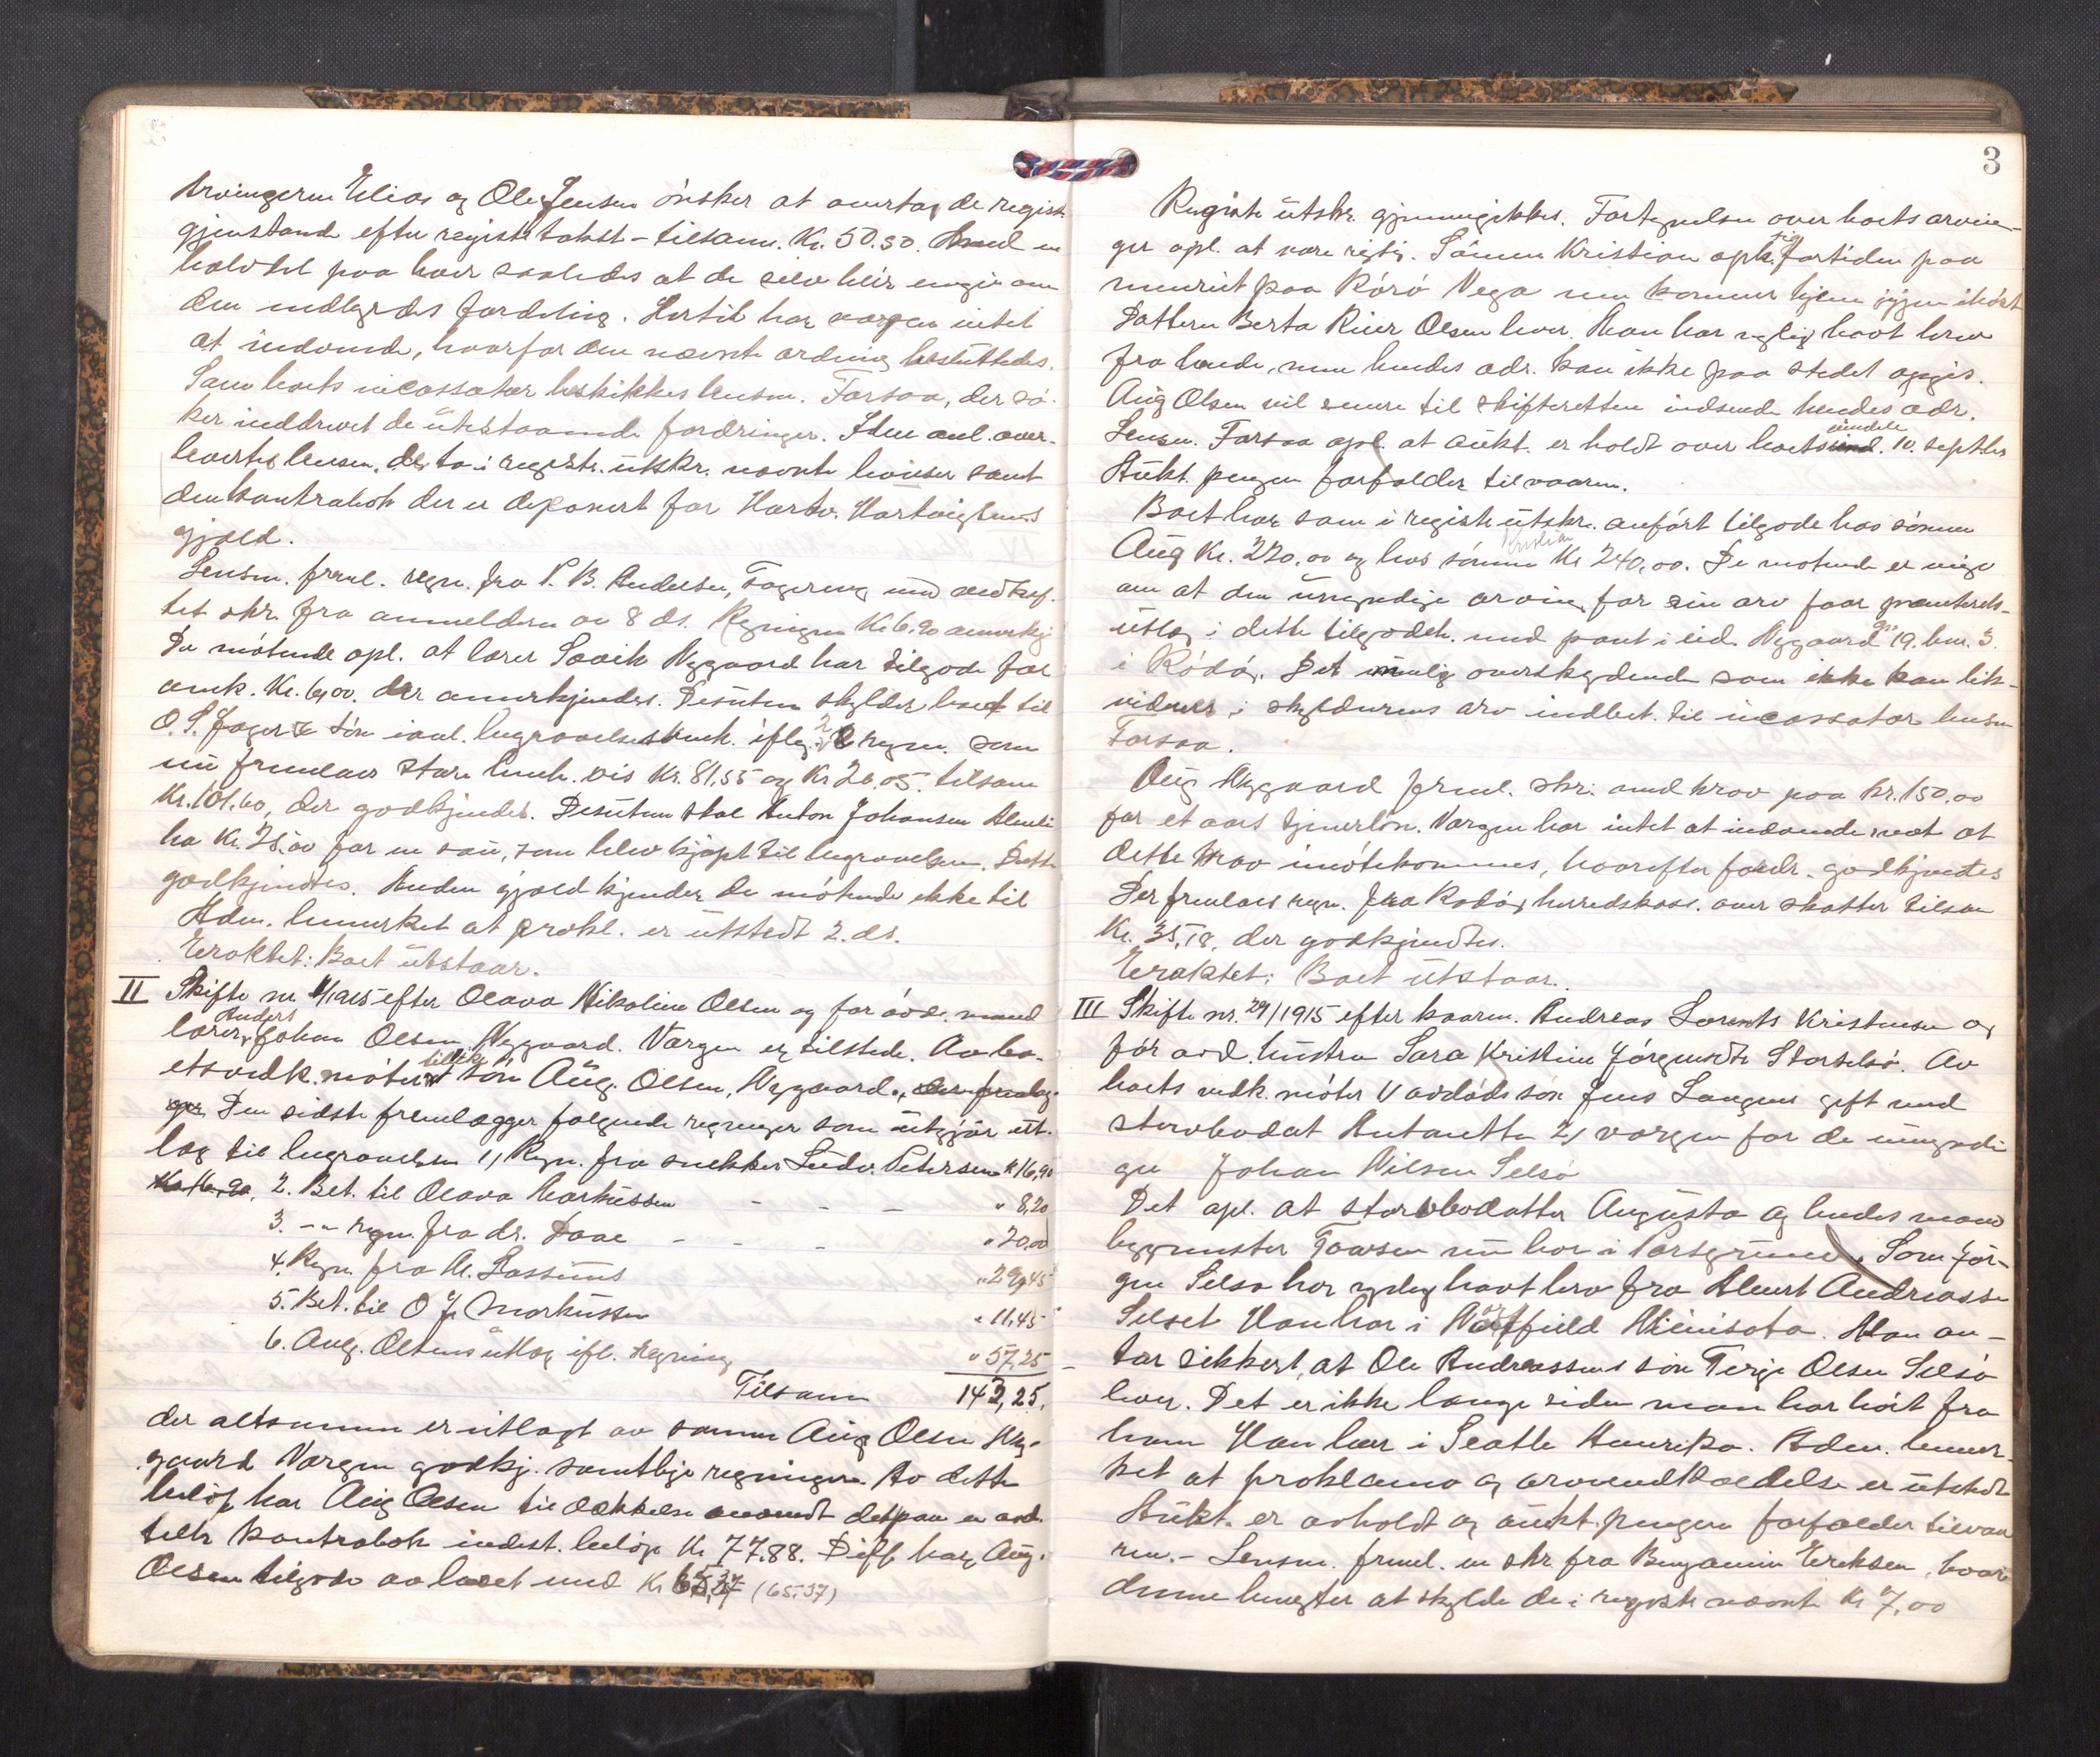 Arvingerne Elias og Ole Jensen ønsker at overta de registr.
gjenstande efter registr. takst - tilsam. Kr. 50.50. Med en
halvdel paa hver saaledes at de selv blir enige om
den indbyrdes fordeling. Hertil har vergen intet
at indvende, hvorfor den nævnte ordning besluttedes.
Som boets incassator beskikkes lensm. Forsaa, der sø-
ker inddrevet de utestaaende fordringer. I den anl. over-
leverte lensm. de to i registr. utskr. nævnte beviser samt
den kontrabok der er deponert for Hartv. Hartvigsens
gjæld.
Lensm. freml. regn. fra P. B. Andersen, med vedhef-
tet skr. fra anmelderen av 8 ds. Regningen Kr. 6.90 anerkj.
De møtende opl. at lærer Nygaard har tilgode for
Kr. 6,00. der anerkjendes. Desuten skylder boet til
O. S. søn iaal. begravelsesomk. iflg. 2 regn. som
nu fremlaes store henh.vis Kr. 81,55 og Kr 20,05. tilsam
Kr. 101.60, der godkjendes. Desuten skal Anton Johansen
ha Kr. 28.00 for en sau, som blev kjøpt til begravelsen. Dette
godkjendtes. Anden gjæld kjender de møtende ikke til
Adm. bemerket at prokl. er utstedt 2. ds.
Eraktet: Boet utstaar.
II Skifte nr /1915 efter Olava Nikoline Olsen og før avd. mand
lærer Anders Johan Olsen Nygaard. Vergen er tilstede. Av bo-
ets vedk. møter tillike søn Aug. Olsen, Nygaard., der fremlæg-
ger Den sidste fremlægger følgende regninger som utgjør ut-
læg til begravelsen 1, Regn. fra snekker Ludv. Petersen K 16,90
Kr 16,90, 2. Bet. til Olava Markussen - - - " 8,20
3. -"- regn. fra dr. Daae - - - " 20,00
4. Regn. fra M. Lassens " 29,45
5. Bet. til O J Markussen " 11,45
6. Aug. Olsens utlæg ifl. regning " 57,25
Tilsam 143,25.
der altsammen er utlagt av sønnen Aug Olsen Ny-
gaard Vergen godkj. samtlige regninger. Av dette
beløp har Aug Olsen til dækkelse anvendt det paa en and.
delt kontrabok indest. beløp Kr 77.88. Diff har Aug.
Olsen tilgode av boet med Kr 65,37 (65.37)
3
Registr. utskr. gjennemgikkes. Fortegnelsen over boets arvin-
ger opl. at være rigtig. Sønnen Kristian oph. sig fortiden paa
paa Rørø Vega men kommer hjem igjen i høst
Datteren Berta Olsen lever. Man har nylig havt brev
fra hende, men hendes adr. kan ikke paa stedet opgis.
Aug Olsen vil senere til skifteretten indsende hendes adr.
Lensm. Forsaa opl. at aukt. er holdt over boets eiendele 10. septber
Aukt. pengene forfalder til vaaren.
Boet har som i registr. utskr. anført tilgode hos sønnen
Aug Kr. 270,00 og hos sønnen Kristian Kr 240,00. De møtende er enige
om at den umyndige arving for sin arv faar
utlæg i dette tilgodeh. med pant i eid. Nygaard gn. 19. bnr. 3
i Rødø. Det mulig overskydende som ikke kan lik-
videres i skyldnerens arv indbet. til incassator lensm
Forsaa.
Aug Nygaard freml. skr. med krav paa kr. 150,00
for et aars tjenerløn. Vergen har intet at indvende mot at
dette krav imøtekommes, hvorefter fordr. godkjendtes
Der fremlaes regn. fra Rødø herredskass. over skatter tilsam
Kr. 35,18, der godkjendtes.
Eraktet: Boet utstaar.
III Skifte nr. 29/1915 efter kaarm. Andreas Lorents Kristensen og
før avd. hustru Sara Kristine Jørgensdtr Storselsø. Av
boets vedk. møter 1/ avdødes søn Jens Langnes gift med
stervbodat Antonette 2/ vergen for de umyndi-
ge Johan Nilsen Selsø
Det opl. at stervbodatter Augusta og hendes mand
bygmester Toresen nu bor i Porsgrund. Som Jør-
gen Selsø har nylig havt brev fra Albert Andreassen
Selset Han bor i Minisota. Man an-
tar sikkert, at Ole Andreassens søn Terje Olsen Selsø
lever. Det er ikke længe siden man har hørt fra
ham Han bor i Seatle Amerika. Adm. bemer-
ket at proklama og arveindkaldelse er utstedt
Aukt. er avholdt og aukt. pengene forfalder til vaa
ren. - Lensm. freml. en skr. fra Benjamin Eriksen, hvori
denne benegter at skylde de i registr. nævnte Kr 7,00